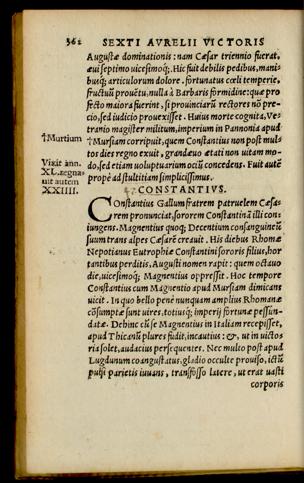 362 SEXTI AVRELII VICTORIS
Augustæ dominationis: nam Cæsar triennio fuerat,
æui septimo uicesimoq́;. Hic fuit debilis pedibus, mani-
busq́; articulorum dolore, fortunatus cœli temperie,
fructuũ prouẽtu, nulla à Barbaris formidine: quæ pro
fecto maiora fuerint, si prouinciarũ rectores nõ pre-
cio, sed iudicio prouexisset. Huius morte cognita, Ve-
tranio magister militum, imperium in Pannonia apud
†Murtium
†Mursiam corripuit, quem Constantius non post mul-
tos dies regno exuit, grandæuo ætati non uitam mo-
Vixit ann.
do, sed etiam uoluptuarium ociũ concedens. Fuit autẽ
XL. regna-
propè ad stultitiam simplicissimus.
uit autem
XXIIII.
CONSTANTIVS.
Constantius Gallum fratrem patruelem Cæsa-
rem pronunciat, sororem Constantinã illi con-
iungens. Magnentius quoq́; Decentium consanguineũ
suum trans alpes Cæsarẽ creauit. His diebus Rhomæ
Nepotianus Eutrophiæ Constantini sororis filius, hor-
tantibus perditis, Augusti nomen rapit: quem octauo
die, uicesimoq́; Magnentius oppressit. Hoc tempore
Constantius cum Magnentio apud Mursiam dimicans
uicit. In quo bello penè nunquam amplius Rhomanæ
cõsumptæ sunt uires, totiusq́; imperij fortunæ pessun-
datæ. Dehinc cũ se Magnentius in Italiam recepisset,
apud Thicanũ plures fudit, incautius: &, ut in uicto
ria solet, audacius persequentes. Nec multo post apud
Lugdunum coangustatus, gladio occulte prouiso, ictũ
parietis iuuans, transfosso latere, ut erat uasti
corporis